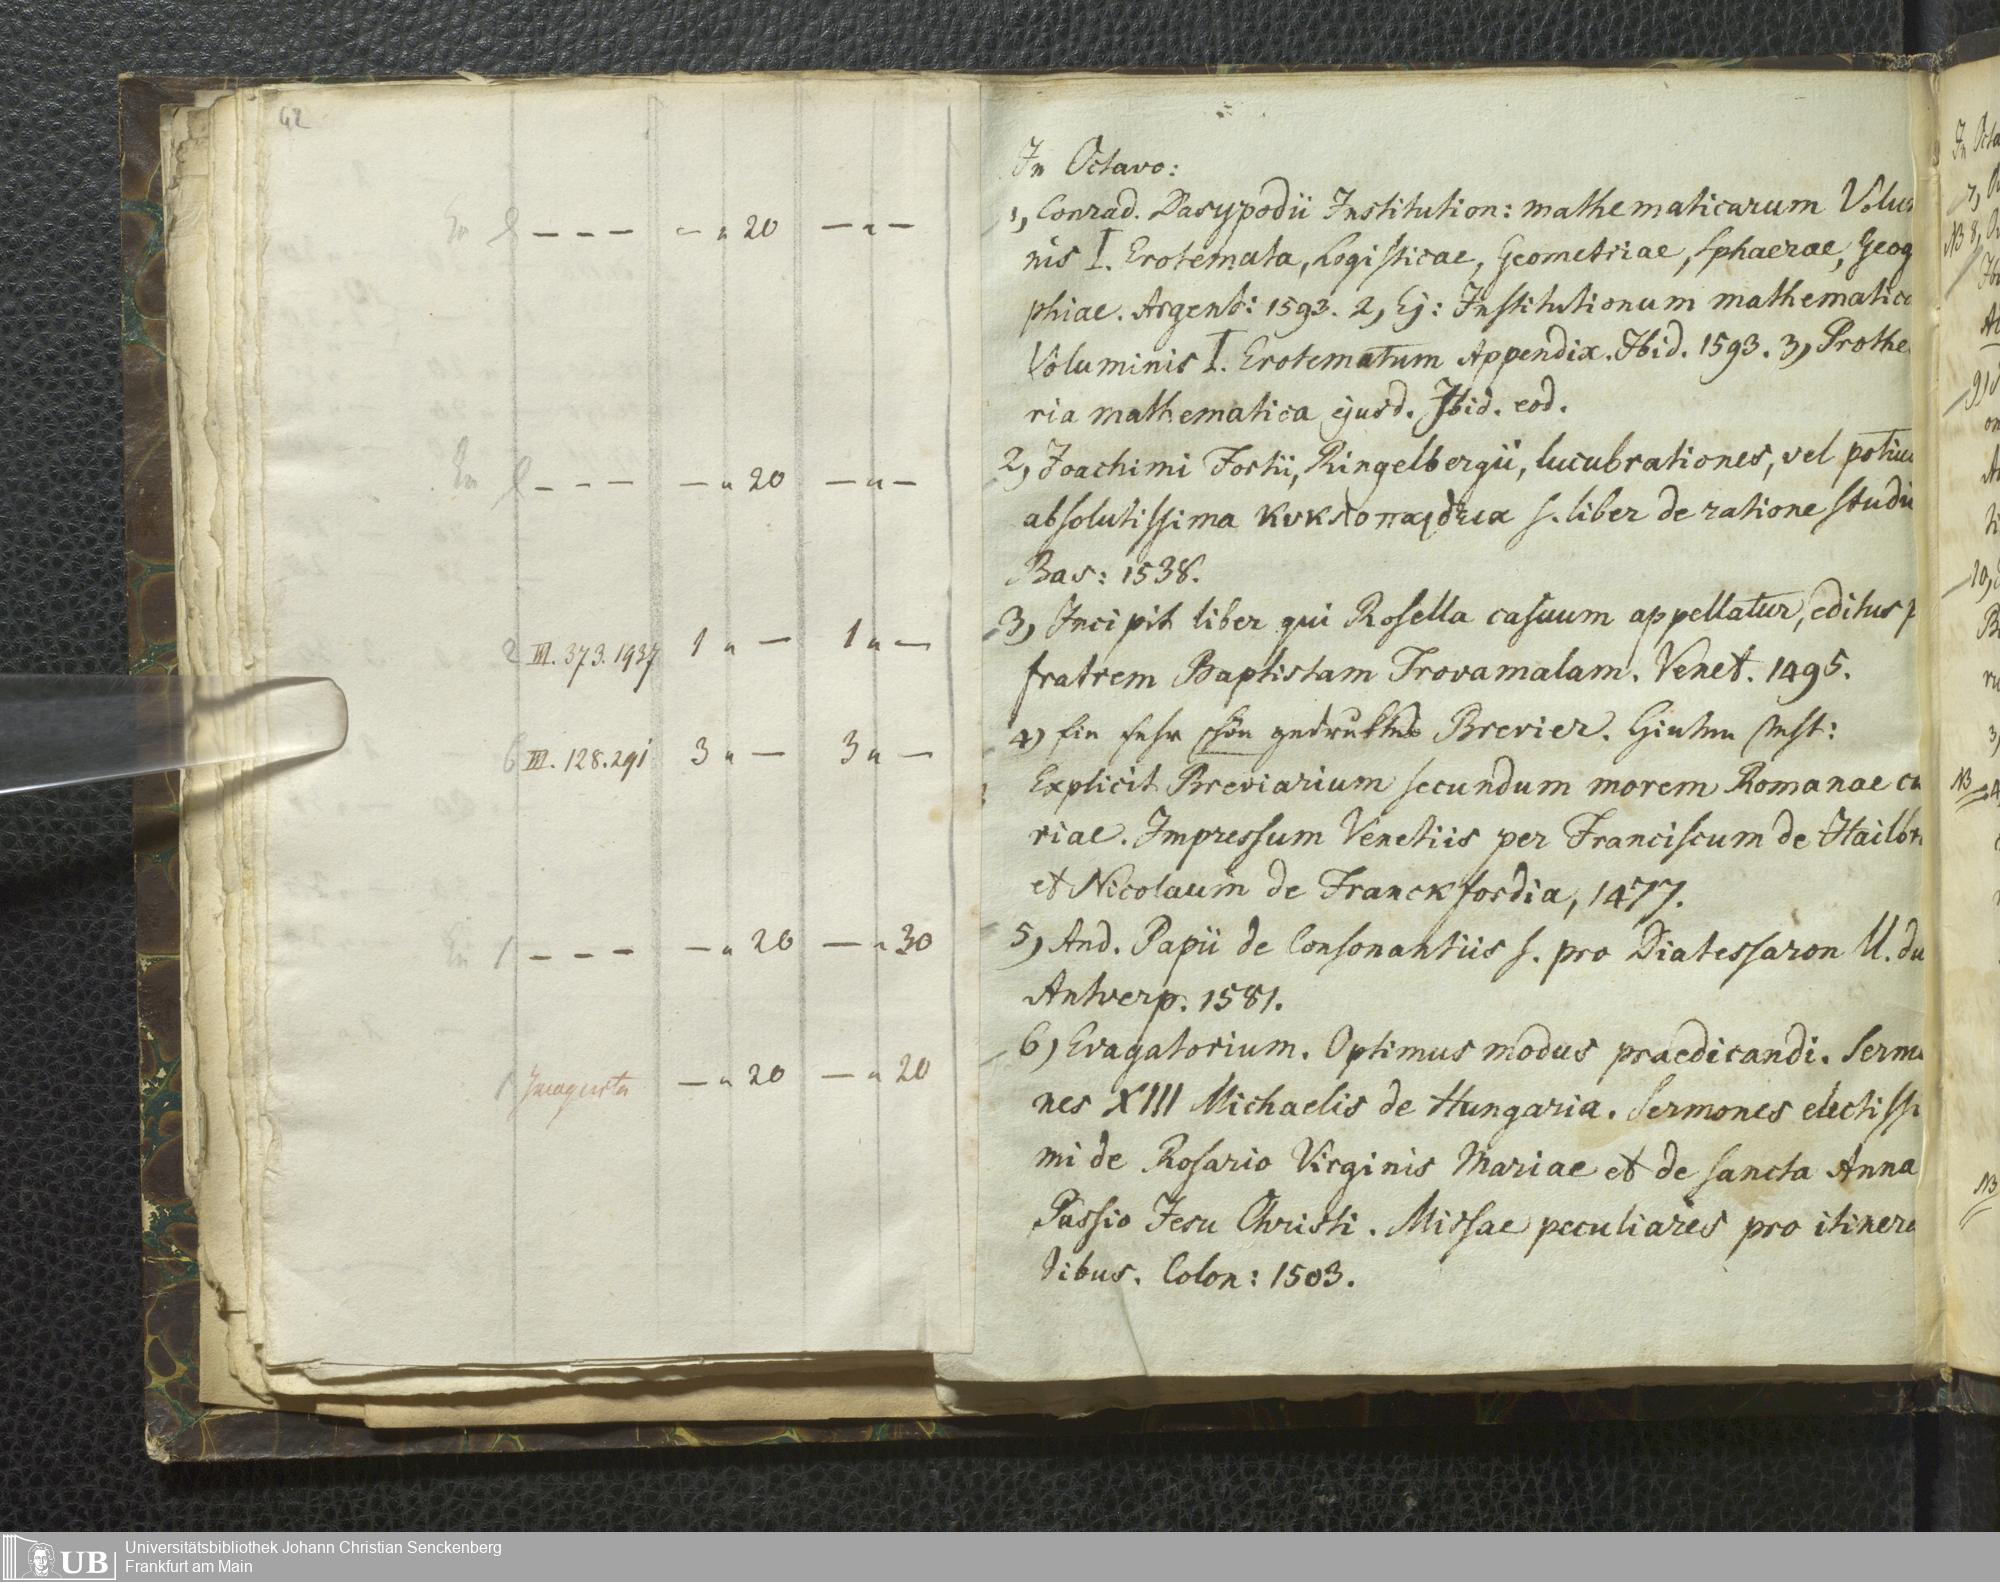 42
En 8 – – – – " 20 – " –
En 8 – – – – " 20 – " –
2 III. 373. 1937 1 " – 1 " –
6 III. 128. 291 3 " – 3 " –
En 1 – – – – " 20 – " 30
1 – " 20 – " 20
In Octavo:
1, Conrad. Dasypodii Institution: mathematicarum Volu
nis I. Erotemata, Logisticae, Geometriae, Sphaerae, Geog
phiae. Argent: 1593. 2, Ej: Institutionum mathematic
Voluminis I. Erotematum Appendix. Ibid. 1593. 3, Prothe
ria mathematica ejusd. Ibid. eod.
2, Joachimi Fortii, Ringelbergii, lucubrationes, vel potiu
absolutissima s. liber de ratione studii
Bas: 1538.
3, Incipit liber qui Rosella casuum appellatur, editus p
fratrem Baptistam Trovamalam. Venet. 1495.
4) Ein sehr schön gedruktes Brevier. Hinten steht:
Explicit Breviarium secundum morem Romanae cu
riae. Impressum Venetiis per Franciscum de Hailbr
et Nicolaum de Franckfordia, 1477.
5, And. Papii de Consonantiis s. pro Diatessaron ll. du
Antverp. 1581.
6) Evagatorium. Optimus modus praedicandi. Sermo
nes XIII Michaelis de Hungaria. Sermones electissi
mi de Rosario Virginis Mariae et de sancta Anna
Passio Jesu Christi. Missae peculiares pro itinera
tibus. Colon: 1503.
In Octa
7,
NB 8,
9,
10,
NB
NB
UB
Universitätsbibliothek Johann Christian Senckenberg
Frankfurt am Main